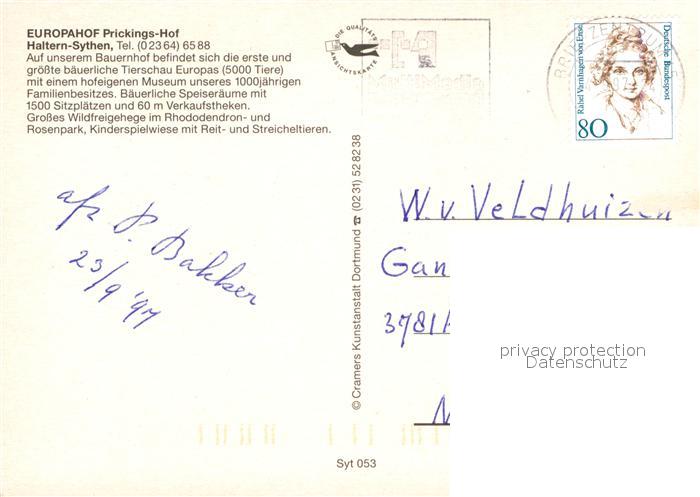 EUROPAHOF Prickings-Hof
Haltern-Sythen, Tel. (0 23 64) 65 88
Auf unserem Bauernhof befindet sich die erste und
größte bäuerliche Tierschau Europas (5000 Tiere)
mit einem hofeigenen Museum unseres 1000jährigen
Familienbesitzes. Bäuerliche Speiseräume mit
1500 Sitzplätzen und 60 m Verkaufstheken.
Großes Wildfreigehege im Rhododendron- und
Rosenpark, Kinderspielwiese mit Reit- und Streicheltieren.
DIE QUALITÄTS
ANSICHTSKARTE
Rahel Varnhagen von Ense
Deutsche Bundespost
80
afz P. Bakker
23/9 '97
© Cramers Kunstanstalt Dortmund ☎ (0231) 52 82 38
W. v. Veldhuizen
Gan
3781
privacy protection
Datenschutz
Syt 053